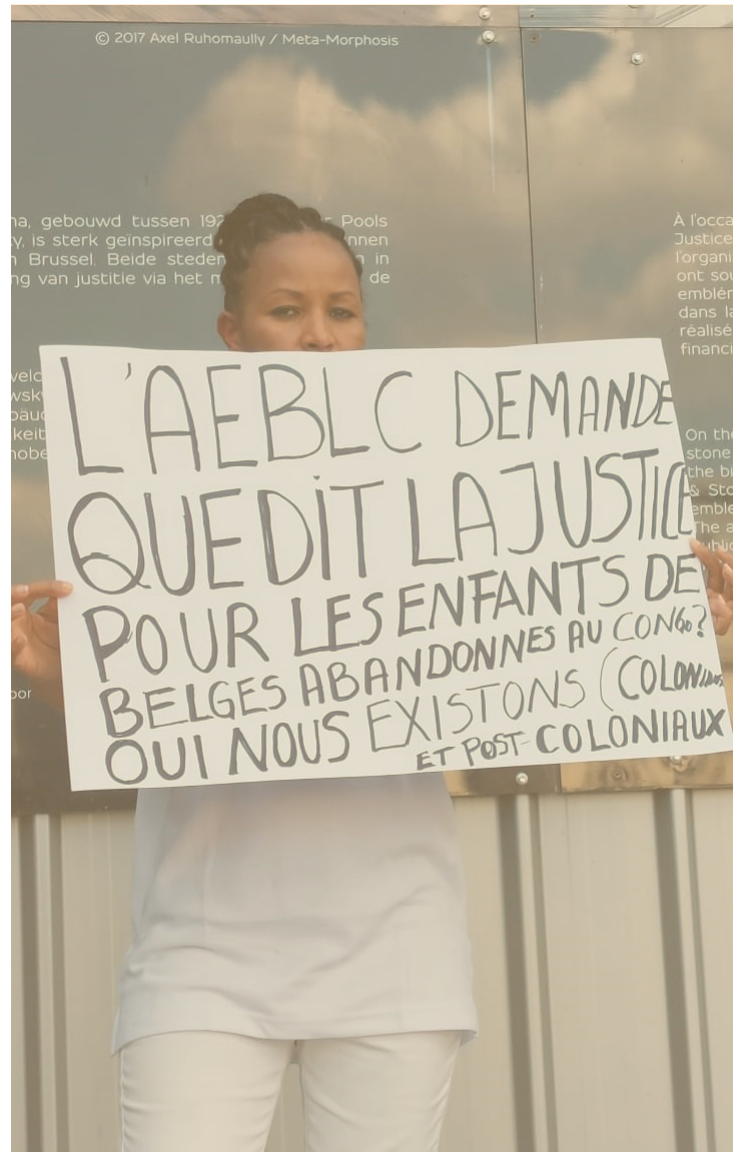 © 2017 Axel Ruhomaully / Meta-Morphosis
gebouwd tussen
Pools
is sterk geïnspireerd
Brussel. Beide steden
in
van justitie via het
de
À l'occa
Justice
l'organi
ont sou
emblém
dans la
réalisé
financi
On the
stone
the bi
& Sto
emble
The a
L'AEBLC DEMANDE
QUE DIT LA JUSTICE
POUR LES ENFANTS DE
BELGES ABANDONNES AU CONGO?
OUI NOUS EXISTONS (COLONIAUX
ET POST-COLONIAUX